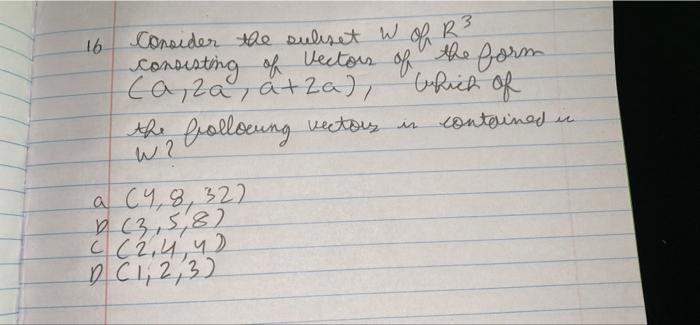 16 Consider the subset W of R³
consisting of Vectors of the form
(a, 2a, a+2a), Which of
the following vectors is contained in
W?
a (4, 8, 32)
b (3, 5, 8)
c (2, 4, 4)
D (1, 2, 3)